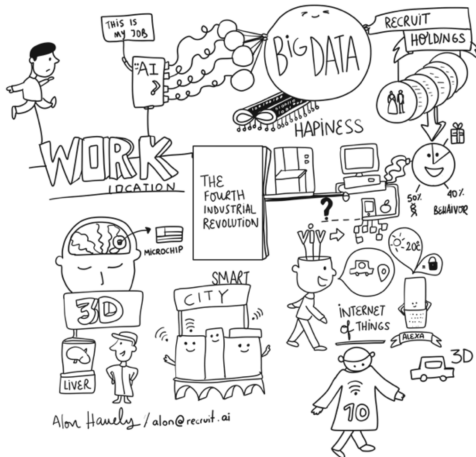 THIS IS
MY JOB
:AI
BIG DATA
RECRUIT
HOLDINGS
HAPINESS
WORK
LOCATION
THE
FOURTH
INDUSTRIAL
REVOLUTION
?
50%
40%
BEHAIVOR
MICROCHIP
3D
LIVER
SMART
CITY
20£
INTERNET
of THINGS
ALEXA
3D
10
Alon / alon@recruit.ai